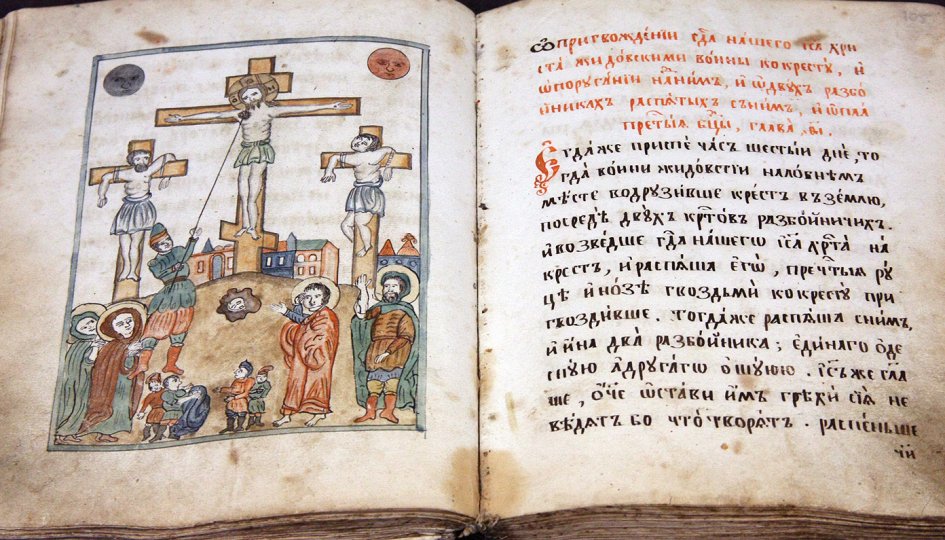 Ѡ пригвожденїи гд҇а нашего іс҃а хри
ста жидовскими воины ко кресту, и
ѡ поруганїи на нимъ, и ѡ двухъ разбо
йникахъ распятыхъ съ нимъ, и ѡ плачѣ
прест҃ыя бц҃ы, глава .в҃і.
Егда же приспе часъ шестый дне, то
гда воини жидовстїи на лобнѣмъ
мѣсте водрузивше крестъ въ землю,
посредѣ двухъ кр҇товъ разбойничихъ.
и возведше гд҇а нашего іс҃а хр҇та на
крестъ, и распяша его, преч҇тыя ру
це и нозѣ гвоздьми ко кресту при
гвоздивше. тогда же распяша с нимъ,
и ина два разбойника; единаго оде
сную а другаго ошуюю. іс҃ъ же гла
ше, ѻ҃че ѡстави имъ грѣхи сїя не
вѣдятъ бо что творятъ. распеньше
чїи